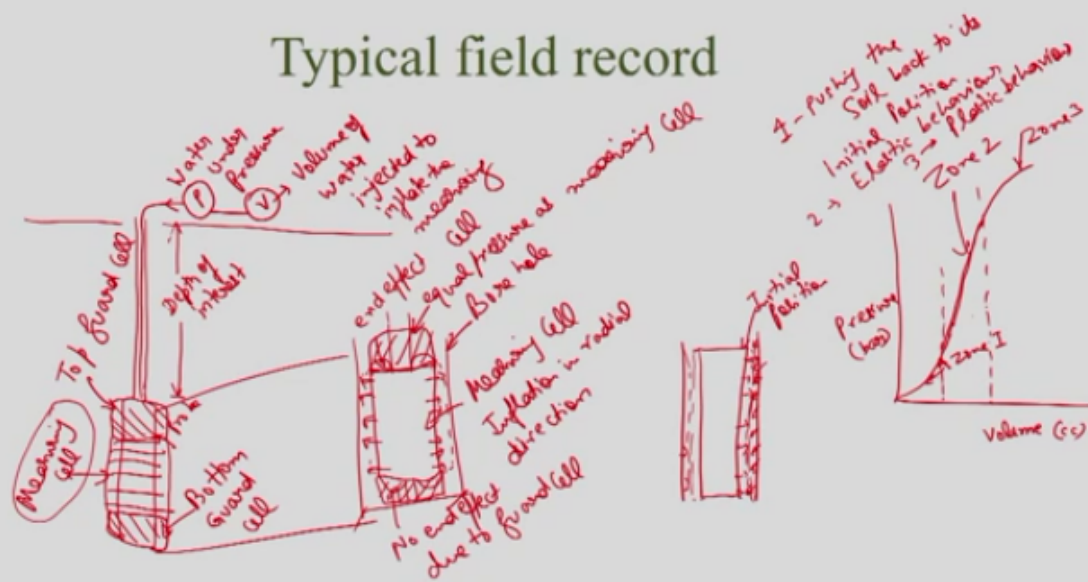 Typical field record
Water
Under
Pressure
P
V
Volume of
water
injected to
inflate the
measuring
cell
Top guard cell
Depth of
interest
Measuring
cell
Bottom
Guard
cell
end effect
equal pressure as measuring cell
Bore hole
Measuring cell
Inflation in radial
direction
No end effect
due to guard cell
Initial
position
1 - Pushing the
Soil back to its
Initial Position
2 → Elastic behaviour
3 → Plastic behaviour
Zone 2
Zone 3
Zone I
Pressure
Volume (cc)